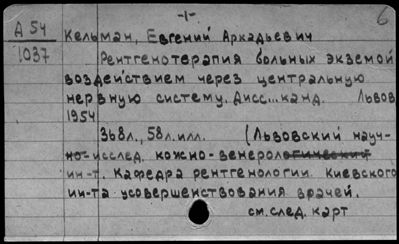 -1-
6
А 54
1037
Кельман, Евгений Аркадьевич
Рентгенотерапия больных экземой
воздействием через центральную
нервную систему. Дисс... канд. Львов
1954
368л., 58л.илл. (Львовский науч-
но-исслед. кожно-венерологический
ин-т. Кафедра рентгенологии Киевского
ин-та усовершенствования врачей.
см.след. карт